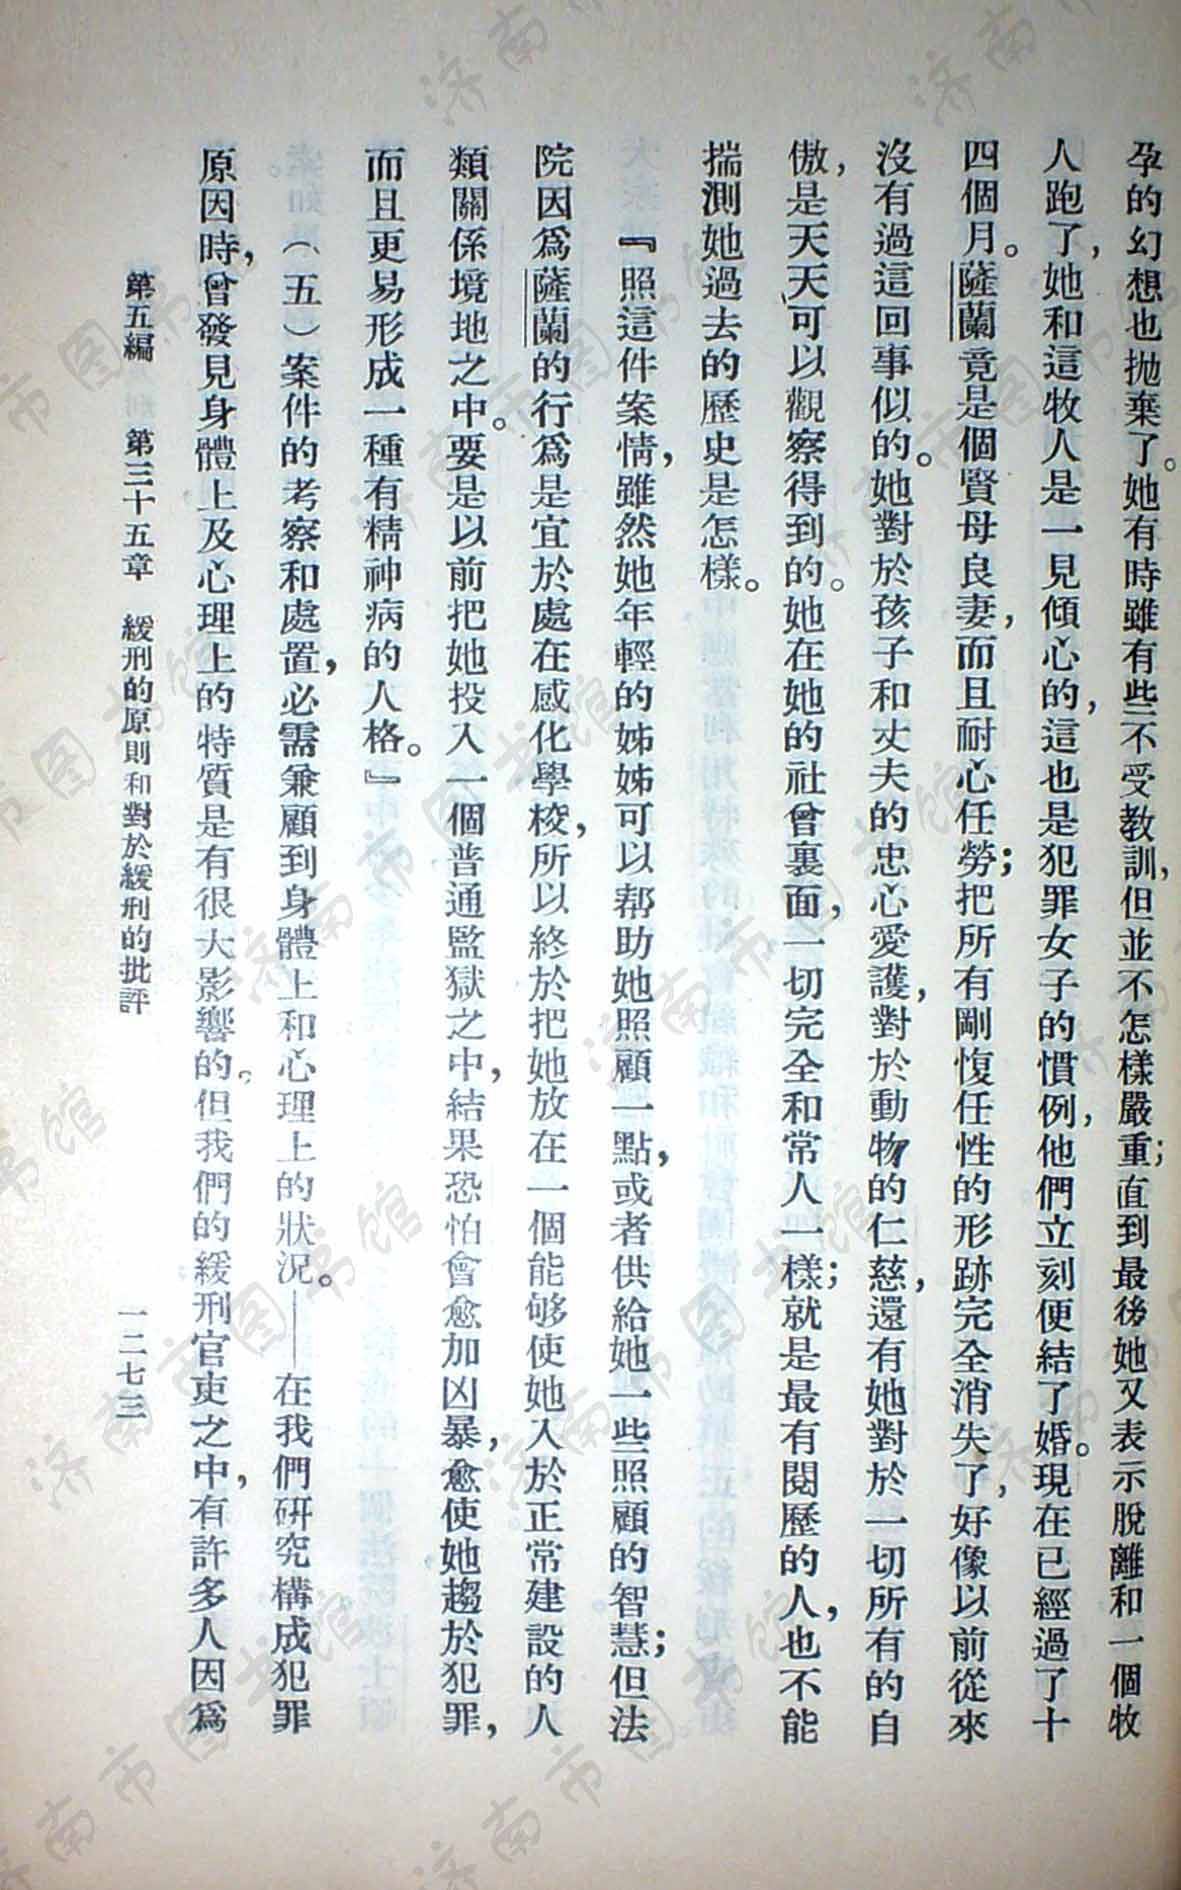 孕的幻想也抛棄了。她有時雖有些不受教訓，但並不怎樣嚴重；直到最後她又表示脫離和一個牧
人跑了，她和這牧人是一見傾心的，這也是犯罪女子的慣例，他們立刻便結了婚。現在已經過了十
四個月。薩蘭竟是個賢母良妻，而且耐心任勞；把所有剛愎任性的形跡完全消失了，好像以前從來
沒有過這回事似的。她對於孩子和丈夫的忠心愛護，對於動物的仁慈，還有她對於一切所有的自
傲，是天天可以觀察得到的。她在她的社會裏面，一切完全和常人一樣；就是最有閱歷的人，也不能
揣測她過去的歷史是怎樣。
『照這件案情，雖然她年輕的姊姊可以帮助她照顧一點，或者供給她一些照顧的智慧；但法
院因爲薩蘭的行爲是宜於處在感化學校，所以終於把她放在一個能够使她入於正常建設的人
類關係境地之中。要是以前把她投入一個普通監獄之中，結果恐怕會愈加凶暴，愈使她趨於犯罪，
而且更易形成一種有精神病的人格。』
（五）案件的考察和處置，必需兼顧到身體上和心理上的狀況。——在我們研究構成犯罪
原因時，曾發見身體上及心理上的特質是有很大影響的。但我們的緩刑官吏之中，有許多人因爲
第五編　第三十五章　緩刑的原則和對於緩刑的批評　一二七三
济南市图书馆